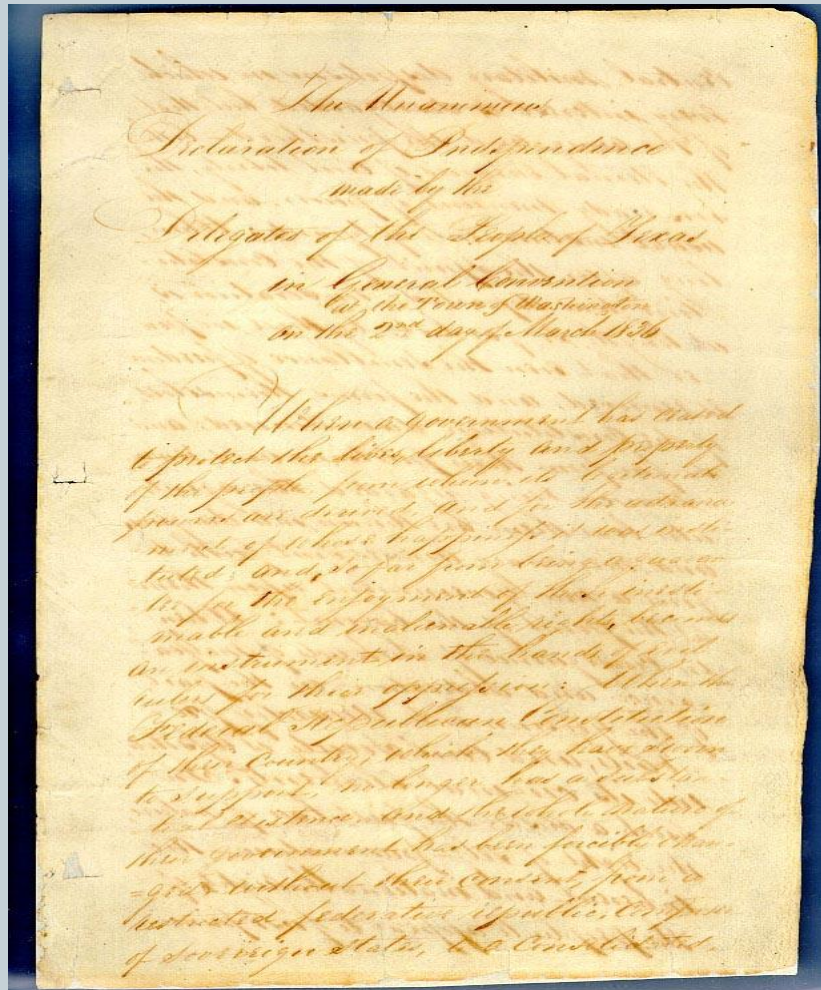 The Unanimous
Declaration of Independence
made by the
Delegates of the People of Texas
in General Convention
at the Town of Washington
on the 2nd day of March 1836
When a government has ceased
to protect the lives, liberty and property
of the people from whom its legitimate
powers are derived, and for the advance-
ment of whose happiness it was insti-
tuted; and, so far from being a guaran-
tee for the enjoyment of those inesti-
mable and inalienable rights, becomes
an instrument in the hands of evil
rulers for their oppression: When the
Federal Republican Constitution
of their Country, which they have sworn
to support, no longer has a substan-
tial existence, and the whole nature of
their government has been forcibly chan-
=ged without their consent, from a
restricted federative republic, composed
of sovereign states, to a consolidated